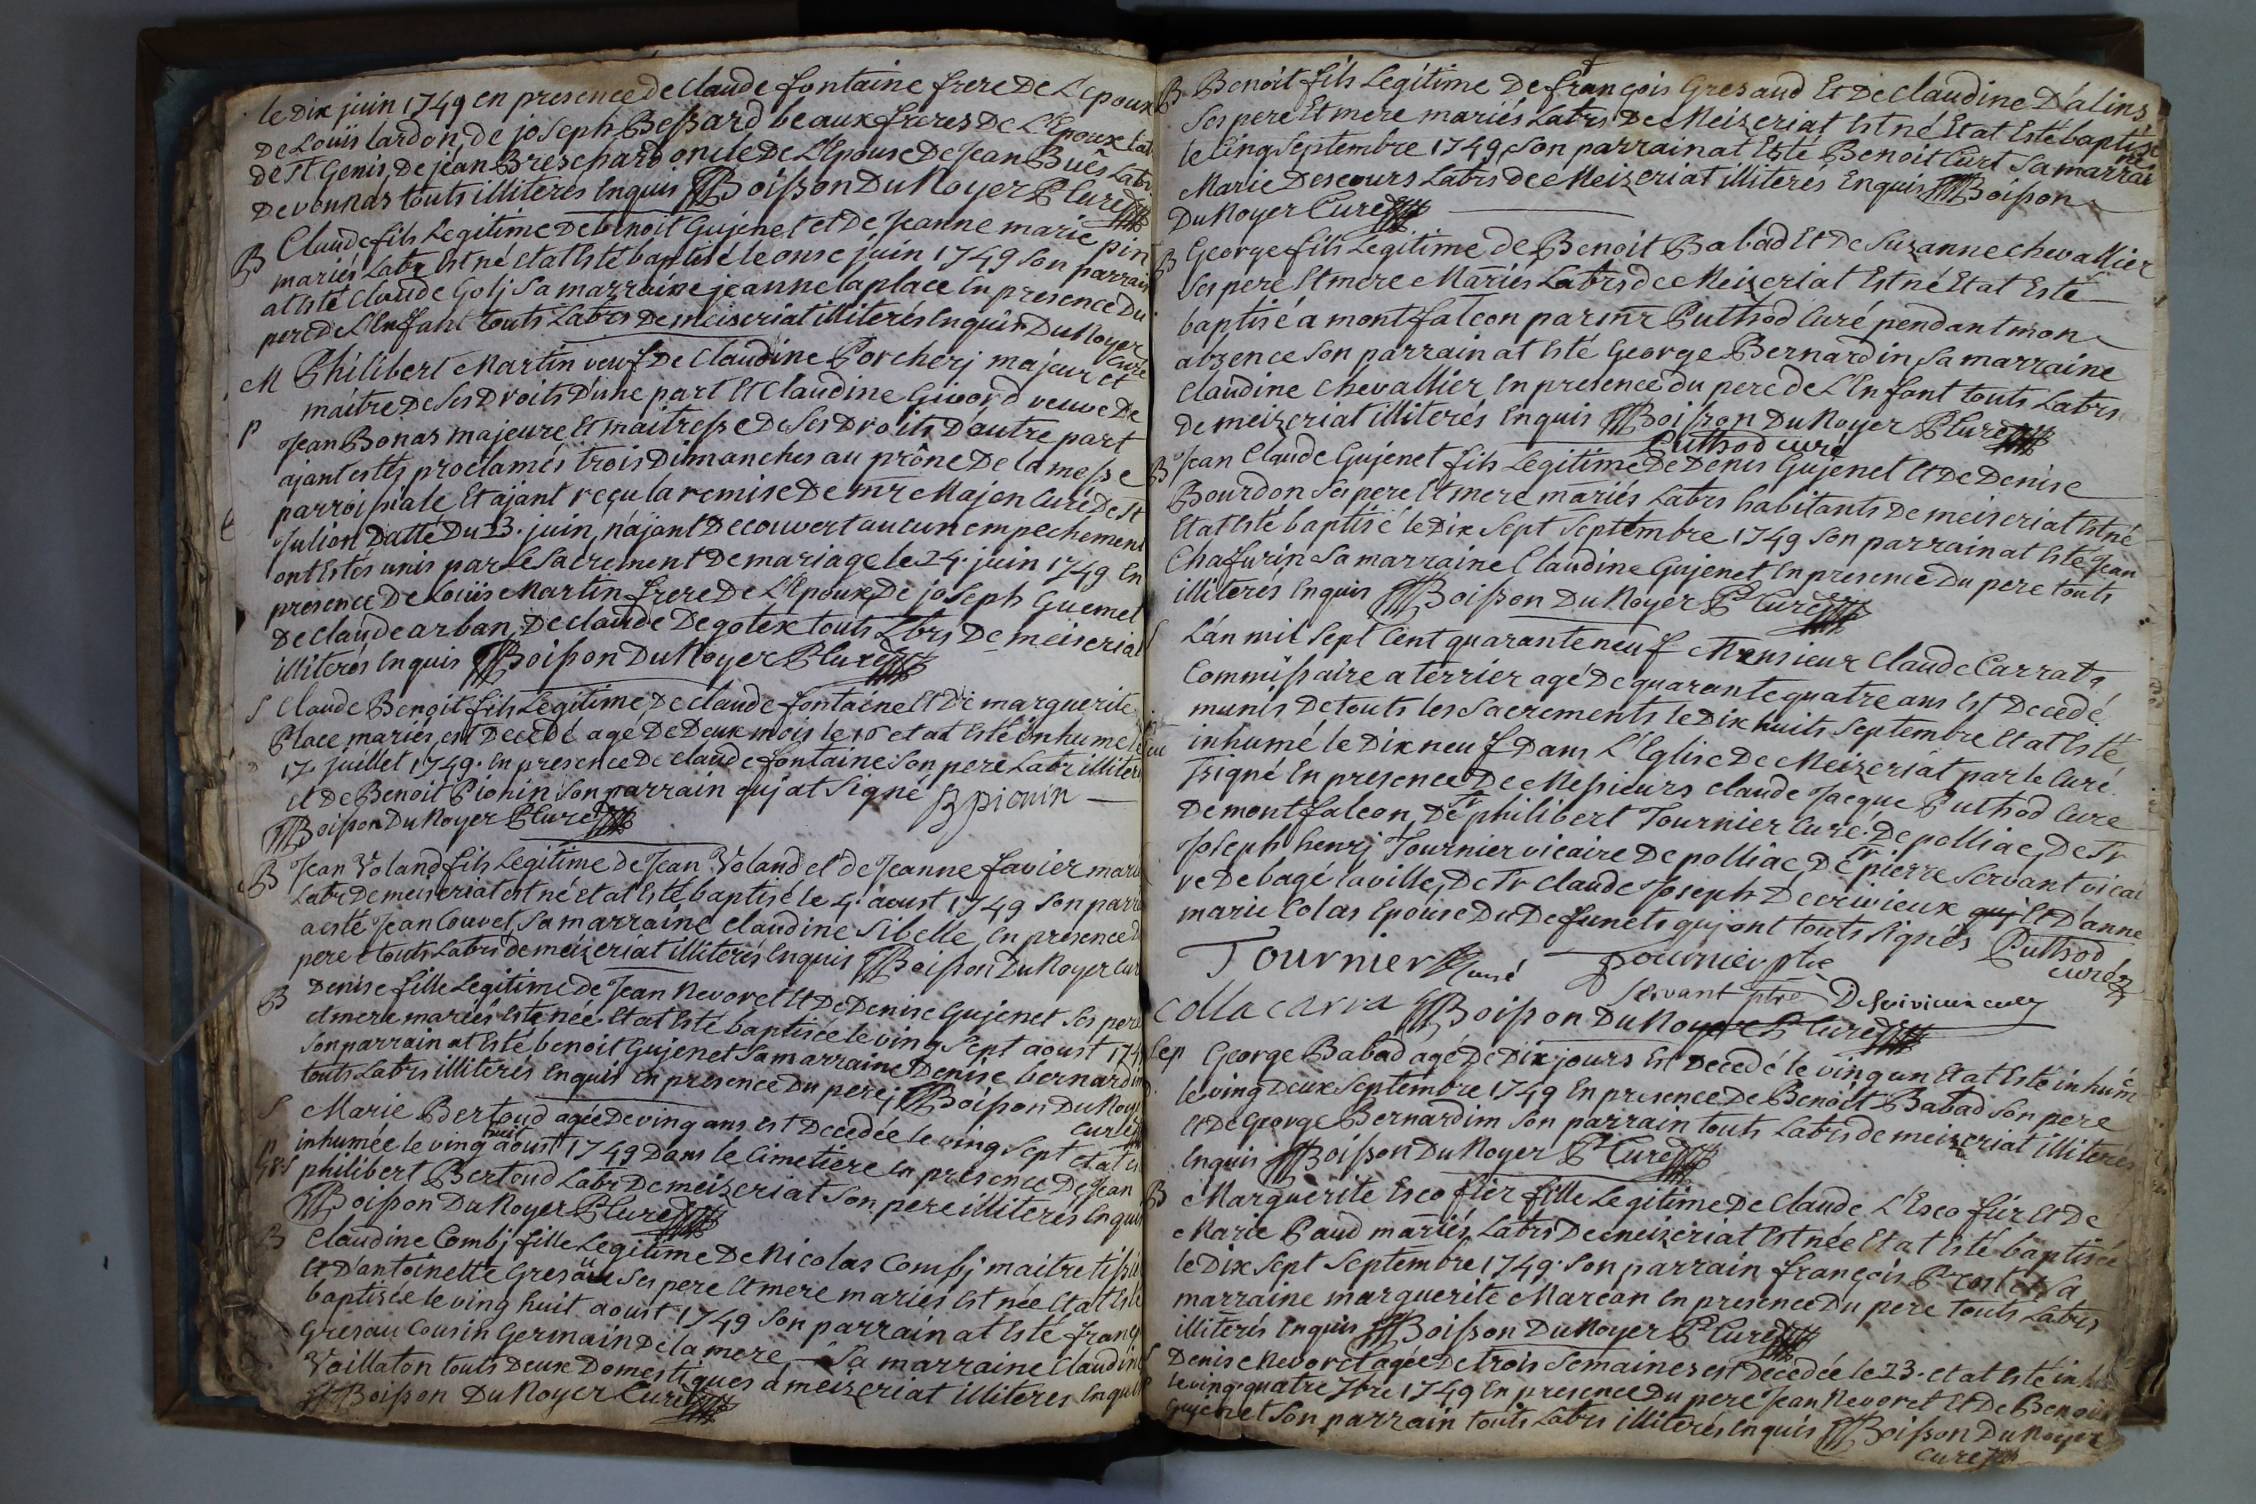 le Dix juin 1749 en presence de claude fontaine frere De L'epoux
De Loüis lardon, de joseph Bessard beaux freres De L'Epoux
de st Genis, de jean Breschard oncle De L'Epouse De Jean Buës Labr
De vonnas touts illiterés Enquis Boisson Du Noyer P Curé
B Claude fils Legitime de benoit Gujenet et De Jeanne marie pin
mariés Labr Est né Etat Esté baptisé le onse juin 1749 Son parrain
at Esté Claude Golj Sa marraine jeanne laplace En presence Du
pere de L'Enffant touts Labrs De meiseriat illiterés Enquis Du Noyer
Curé
M Philibert Martin veuf De Claudine Porcherj majeur et
maitre De Ses Droits D'une part Et Claudine Givord veuve De
P Jean Bonas majeure Et maitresse De Ses Droits D'autre part
ajant estés proclamés trois Dimanches au prône De la messe
parroissiale Et ajant reçu la remise De mr Majen Curé De St
Julion Datté Du 23. juin, n'ajant Decouvert aucun empechement
ont Estés unis par Le Sacrement De mariage le 24. juin 1749 En
presence De Loüis Martin frere De L'Epoux, De joseph Guemet
De claude arban, De claude Degotex touts Lbrs De meiseriat
illiterés Enquis Boisson Du Noyer P Curé
S Claude Benoit fils Legitime De claude fontaine Et De marguerite
Place mariés, est Decedé agé De Deux mois le 16 et at Esté inhumé le
17. juillet 1749. En presence De claude fontaine Son pere Labr illiteré
et De Benoit Pionin Son parrain quj at Signé B pionin
Boisson Du Noyer P Curé
B Jean Voland fils Legitime de Jean Voland et de Jeanne favier mariés
Labr De meiseriat est né et at Esté baptisé le 4. aoust 1749 Son parrain
a esté Jean Couvet, Sa marraine claudine Sibelle, En presence
pere touts Labrs de meizeriat illiterés Enquis Boisson Du Noyer Cur
B Denise fille Legitime de Jean Nevoret Et De Denise Gujenet Ses pere
et mere mariés Est née Et at Esté baptisée le ving Sept aoust 174
Son parrain at Esté benoit Gujenet Sa marraine Denise bernardin
touts Labrs illiterés Enquis En presence Du pere Boisson Du Noyer
Curé
S Marie Bertoud agée De ving ans est Decedée le ving Sept et at Es
inhumée le ving huit aoust 1749 Dans le Cimetiere En presence De Jean
philibert Bertoud Labr De meizeriat Son pere illiterés Enquis
Boisson Du Noyer P Curé
B Claudine Combj fille Legitime De Nicolas Combj maitre tissi
Et D'antoinette Gresau Ses pere Et mere mariés Est née Et at Esté
baptisée le ving huit aoust 1749 Son parrain at Esté franç
Gresau Cousin Germain De la mere Sa marraine Claudine
Voillaton touts Deux Domestiques a meizeriat illiteres Enquis
Boisson Du Noyer Curé
B Benoit fils Legitime De françois Gresaud Et De claudine D'alins
Ses pere Et mere mariés Labrs De Meizeriat Est né Et at Esté baptisé
le Cinq Septembre 1749, Son parrain at Esté Benoit Curt Sa marrai
ne
Marie Descours Labrs de Meizeriat illiterés Enquis Boisson
Du Noyer Curé
B George fils Legitime de Benoit Babad Et De Suzanne chevallier
Ses pere Et mere Mariés Labrs de Meizeriat Est né Et at Esté
baptisé a montfalcon par mr Puthod Curé pendant mon
absence Son parrain at Esté George Bernardin Sa marraine
Claudine chevallier En presence du pere de L'Enfant touts Labrs
De meizeriat illiterés Enquis Boisson Du Noyer P Curé
Puthod curé
B Jean Claude Gujenet fils Legitime De Denis Gujenet Et De Denise
Bourdon Ses pere Et mere mariés Labrs habitants De meiseriat Est né
Et at Esté baptisé le Dix Sept Septembre 1749 Son parrain at Esté Jean
Chaffurin Sa marraine Claudine Gujenet En presence Du pere touts
illiterés Enquis Boisson Du Noyer P Curé
S L'an mil Sept Cent quarante neuf Monsieur Claude Carrat
Commissaire a terrier agé De quarante quatre ans Est Decedé
munis De touts les Sacrements le Dix huits Septembre Et at Esté
inhumé le Dix neuf Dans L'Eglise De Meizeriat par le Curé
Ssigné En presence De Messieurs Claude Jacque Puthod Curé
De montfalcon, De Sr philibert Tournier Curé De polliac, De Sr
Joseph henrj Tournier vicaire De polliac, De Sr pierre Servant vicai
re De bagé la ville, De Sr Claude Joseph Decrivieux quj Et D'anne
marie Colas Epouse Du Defunets quj ont touts Signés Puthod
curé
Tournier Curé Tournier ptre
Servant ptre Decrivieux
colla carra Boisson Du Noyer P Curé
Sep George Babad agé De Dix jours Est Decedé le ving un Et at Esté inhumé
le ving Deux Septembre 1749 En presence De Benoit Babad Son pere
Et De George Bernardim Son parrain touts Labrs de meizeriat illiterés
Enquis Boisson Du Noyer P Curé
B Marguerite Escoffier fille Legitime De Claude L'Escoffier Et De
Marie Paud mariés Labrs De meizeriat Est née Et at Esté baptisée
le Dix Sept Septembre 1749. Son parrain françois Prostet Sa
marraine marguerite Marcon En presence Du pere touts Labrs
illiterés Enquis Boisson Du Noyer P Curé
Denise Nevoret agée De trois Semaines est Decedée le 23. et at Esté inhu
le ving quatre 7bre 1749 En presence Du pere Jean Nevoret Et De Benoit
Gujenet Son parrain touts Labrs illiterés Enquis Boisson Du Noyer
Curé